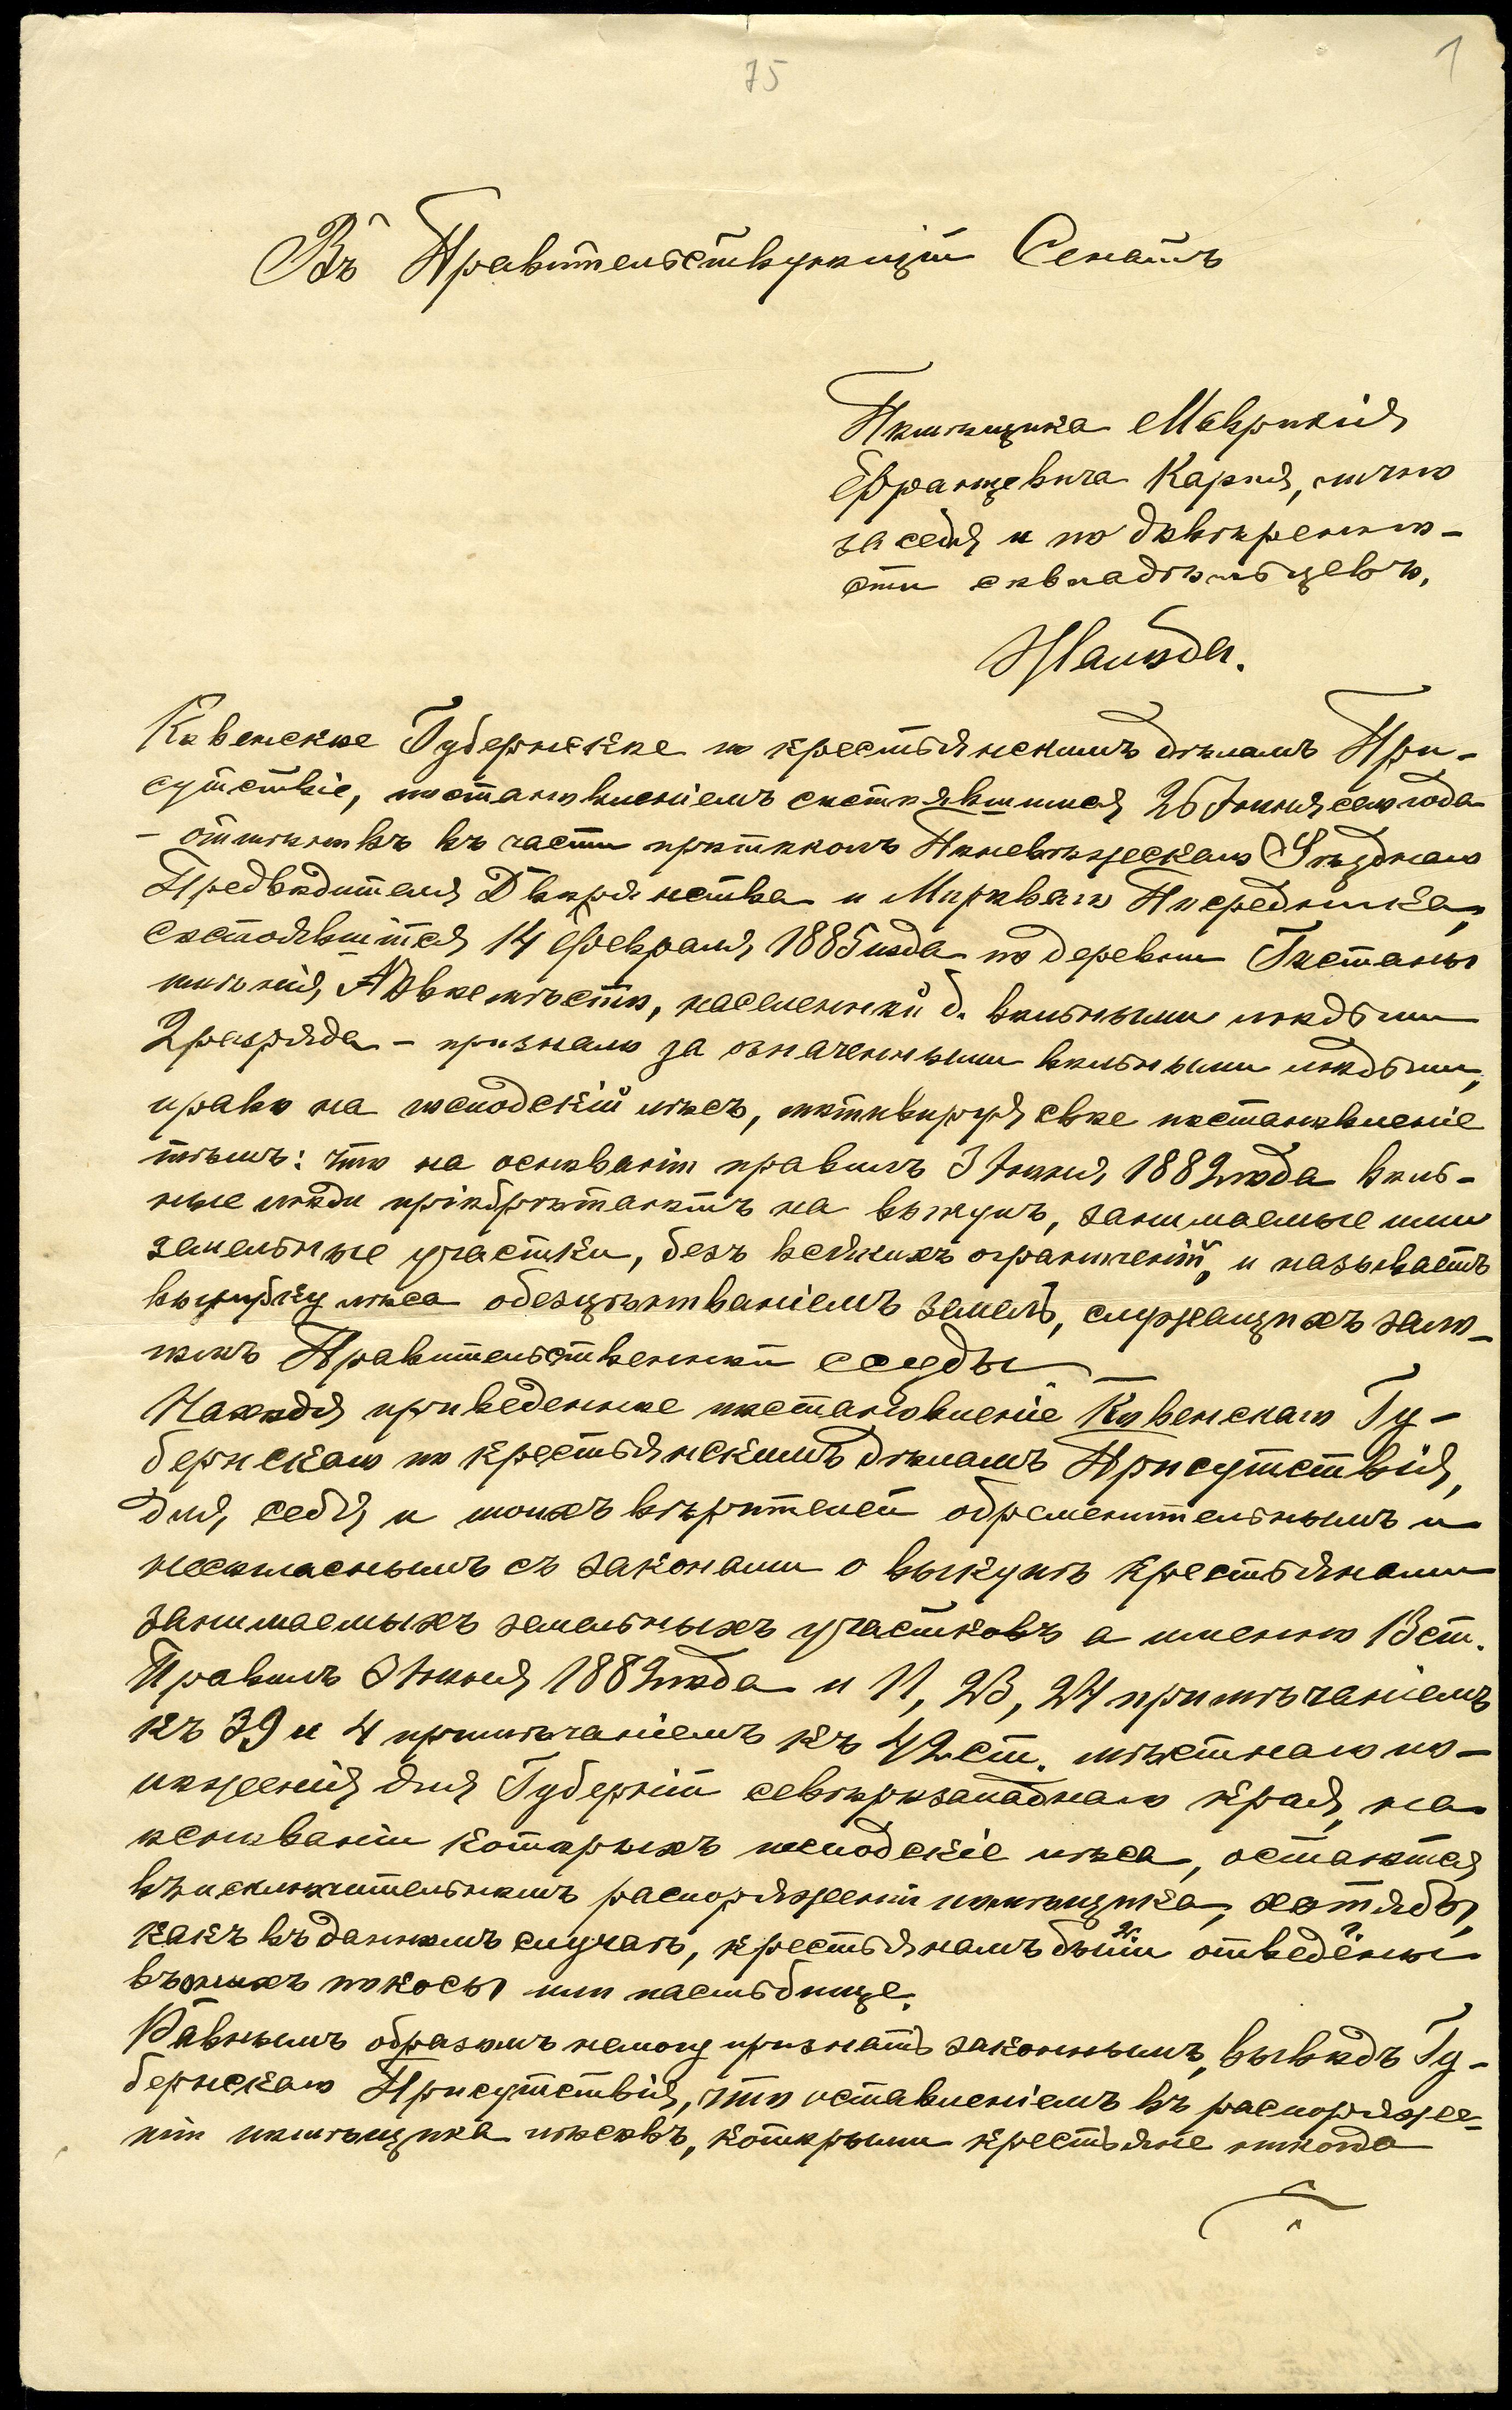 75
1
Въ Правительствующій Сенатъ
Помѣщика Маврикія
Францевича Карпя, лично
за себя и по довѣренно-
сти совладѣльцевъ,
Жалоба.
Ковенское Губернское по крестьянскимъ дѣламъ При-
сутствіе, постановленіемъ состоявшимся 26 Іюня сего года
- отмѣнивъ въ части протоколъ Поневѣжскаго Уѣзднаго
Предводителя Дворянства и Мироваго Посредника,
состоявшійся 14 Февраля 1885 года по деревни
имѣнія, населенной б. вольными людьми
2 разряда - признало за означенными вольными людьми,
право на господскій лѣсъ, мотивируя свое постановленіе
тѣмъ: что на основаніи правилъ 3 Іюня, 1882 года воль-
ные люди пріобрѣтаютъ на выкупъ, занимаемые ими
земельные участки, безъ всякихъ ограниченій, и называетъ
вырубку лѣса обезцѣниваніемъ земель, служащихъ зало-
гомъ Правительственной ссуды.
Находя приведенное постановленіе Ковенскаго Гу-
бернскаго по крестьянскимъ дѣламъ Присутствія,
для, себя и моихъ вѣрителей обременительнымъ и
несогласнымъ съ законами о выкупѣ крестьянами
занимаемыхъ земельныхъ участковъ а именно 13 ст.
Правилъ 3 Іюня 1882 года и 11, 23, 24 примѣчаніемъ
къ 39 и 4 примѣчаніемъ къ 42 ст. мѣстнаго по-
ложенія для Губерній сѣверозападнаго края, на
основаніи которыхъ господскіе лѣса, остаются
въ исключительномъ распоряженіи помѣщика, хотябы,
какъ въ данномъ случаѣ, крестьянамъ были отведены
въ нихъ покосы или пастбище.
Равнымъ образомъ немогу признать законнымъ, выводъ Гу-
бернскаго Присутствія, что оставленіемъ въ распоряже-
ніи помѣщика лѣсовъ, которыми крестьяне никогда